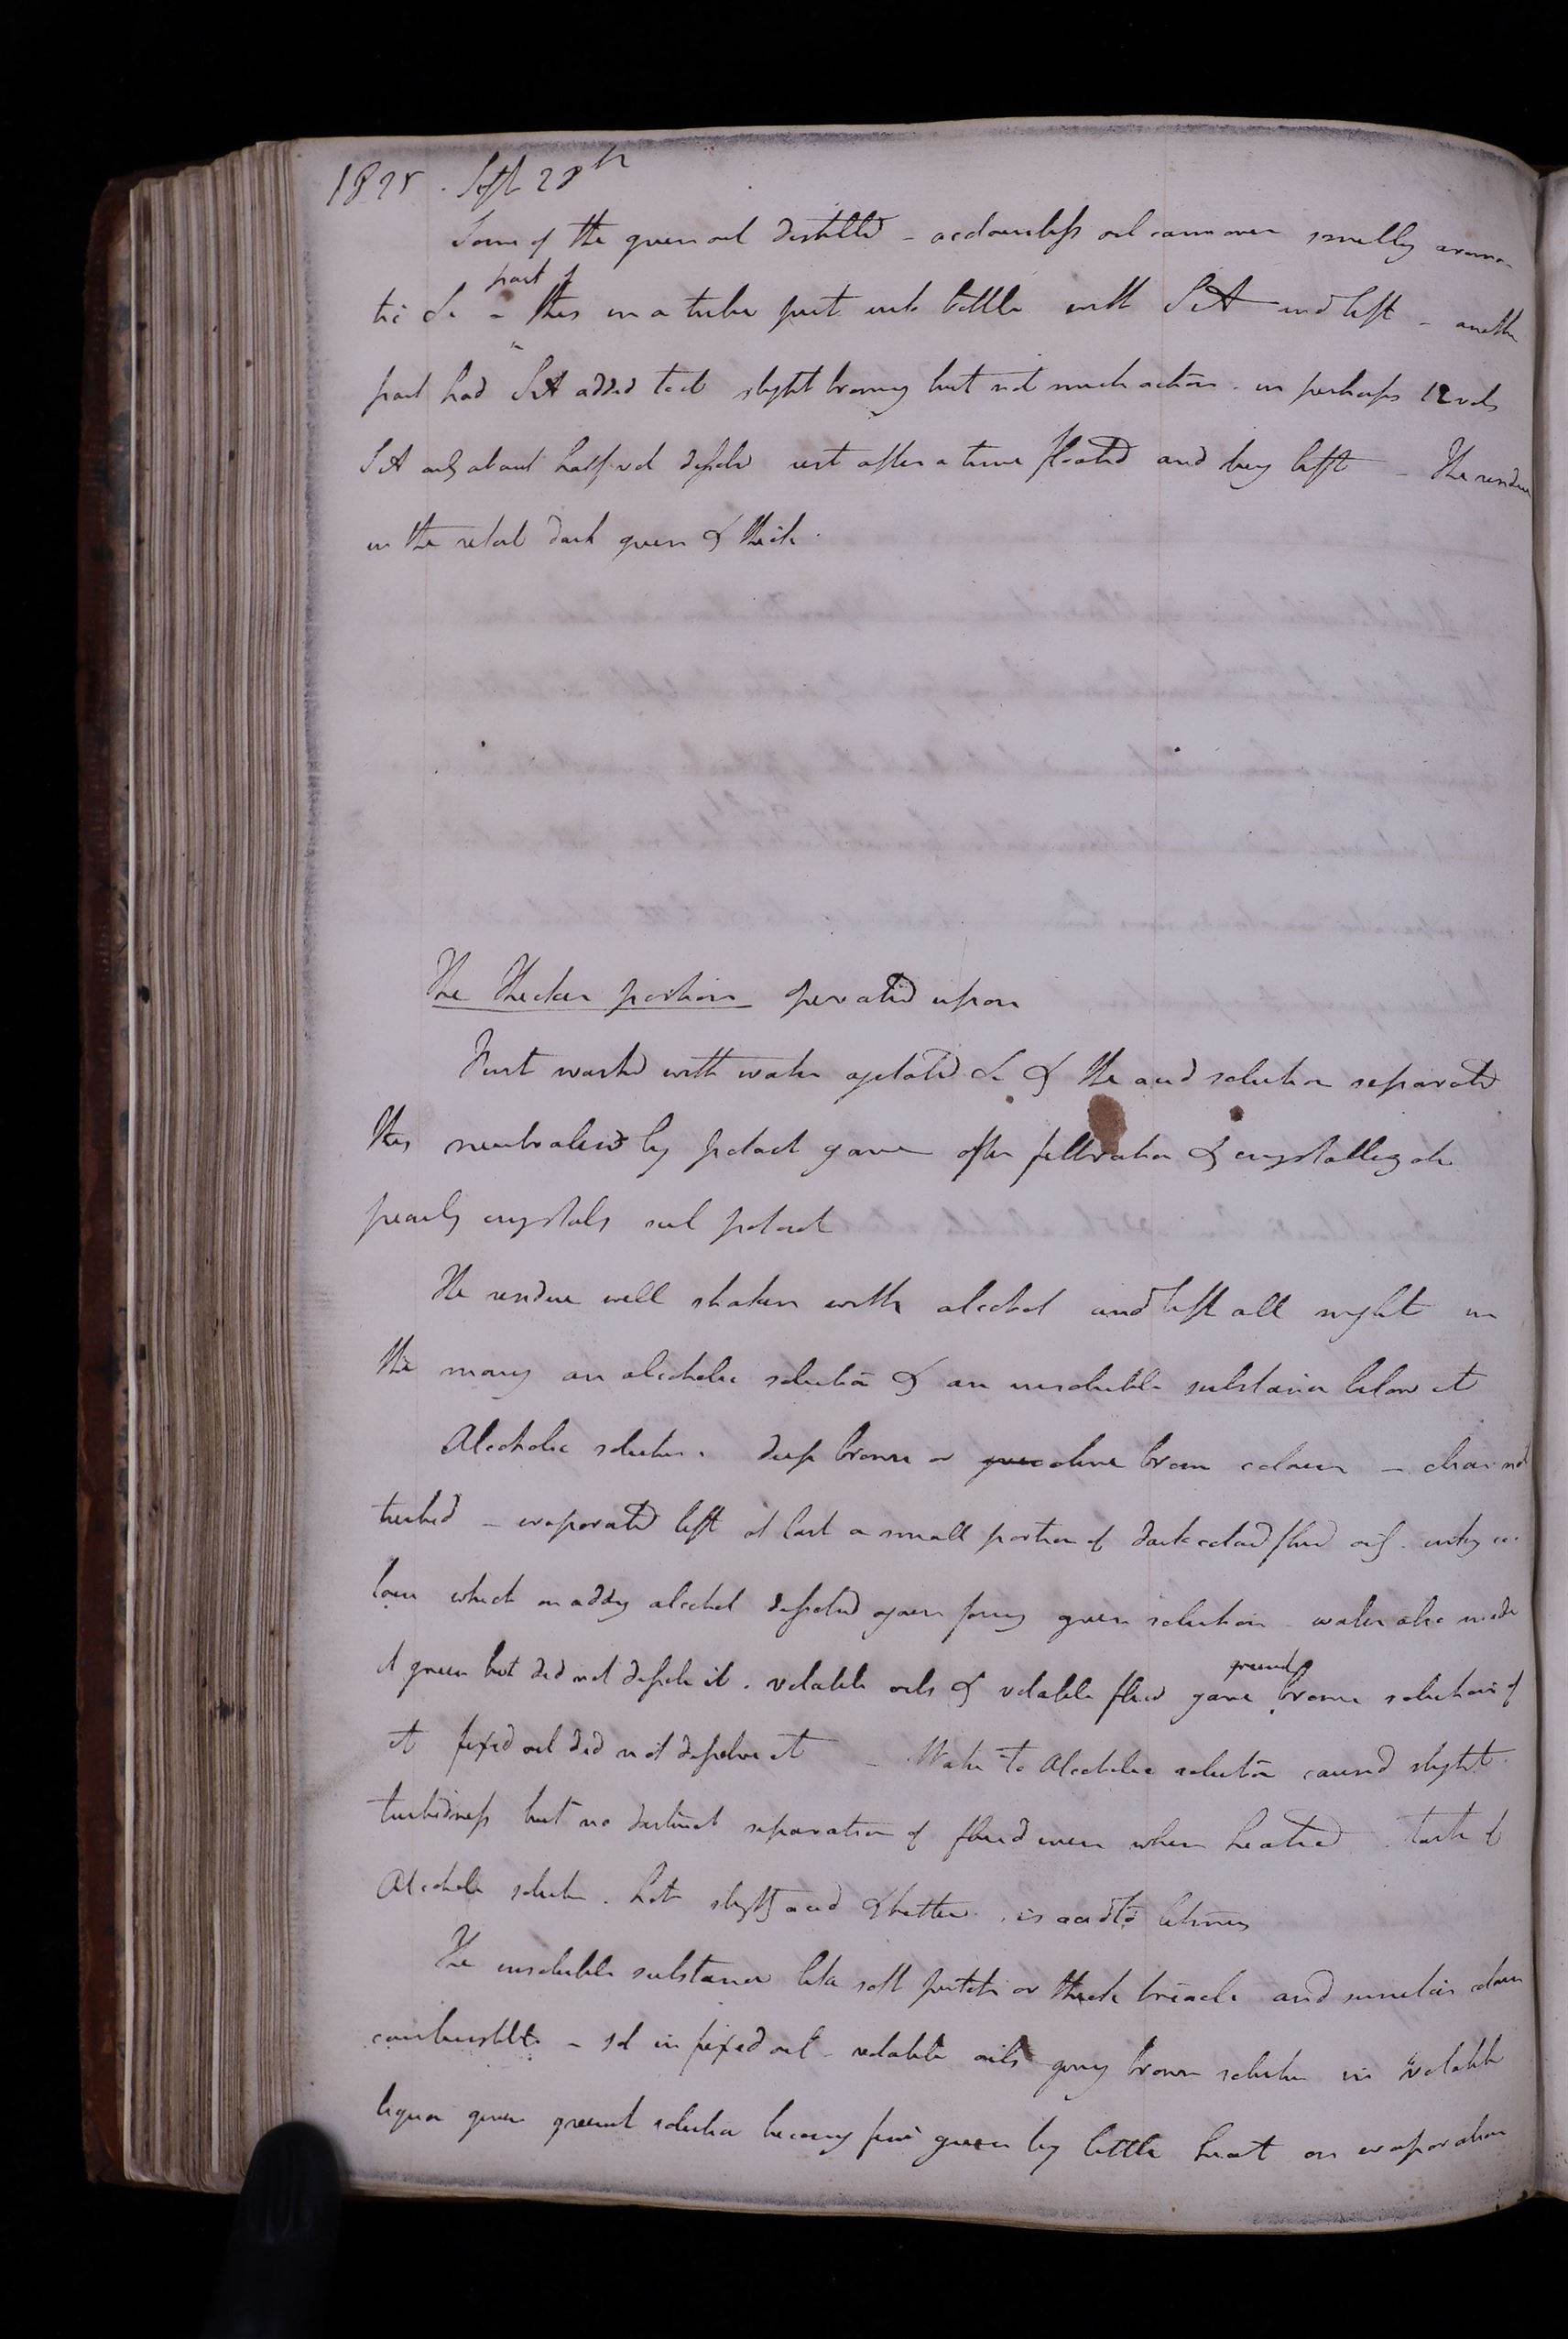 1825. Sept 28th
Some of the green oil distilled - a colourless oil came over smelling aroma-
part of
tic &c - this in a tube put into bottle with S A and left - another
part had S A added to it slight browning but not much action. in perhaps 12 vols
S A only about half vol dissolved rest after a time floated and being left - The residue
in the retort dark green & thick.
The Thicker portion operated upon
First washed with water agitated &c & the acid solution separated
this neutralised by potash gave after filtration & crystallizatn
pearly crystals sul potash
The residue well shaken with alcohol and left all night in
the morng an alcoholic solution & an insoluble substance below it
Alcoholic solution. deep brown or green olive brown colour - clear not
turbid - evaporated left at last a small portion of dark cold fluid oil. co-
lour which on adding alcohol dissolved again forming green solution - water also made
it green but did not dissolve it. volatile oils & volatile fluid gave brown solution of
greenish
it fixed oil did not dissolve it - Water to Alcoholic solution caused slight
turbidness but no distinct separation of fluid even when heated. taste of
Alcoholic solution. hot slightly acid & bitter. is acid to litmus
The insoluble substance like soft pitch or thick treacle and similar colour
combustible - sol in fixed oil - volatile oils giving brown solution in volatile
liquor gives greenish solution becoming fine green by little heat on evaporation